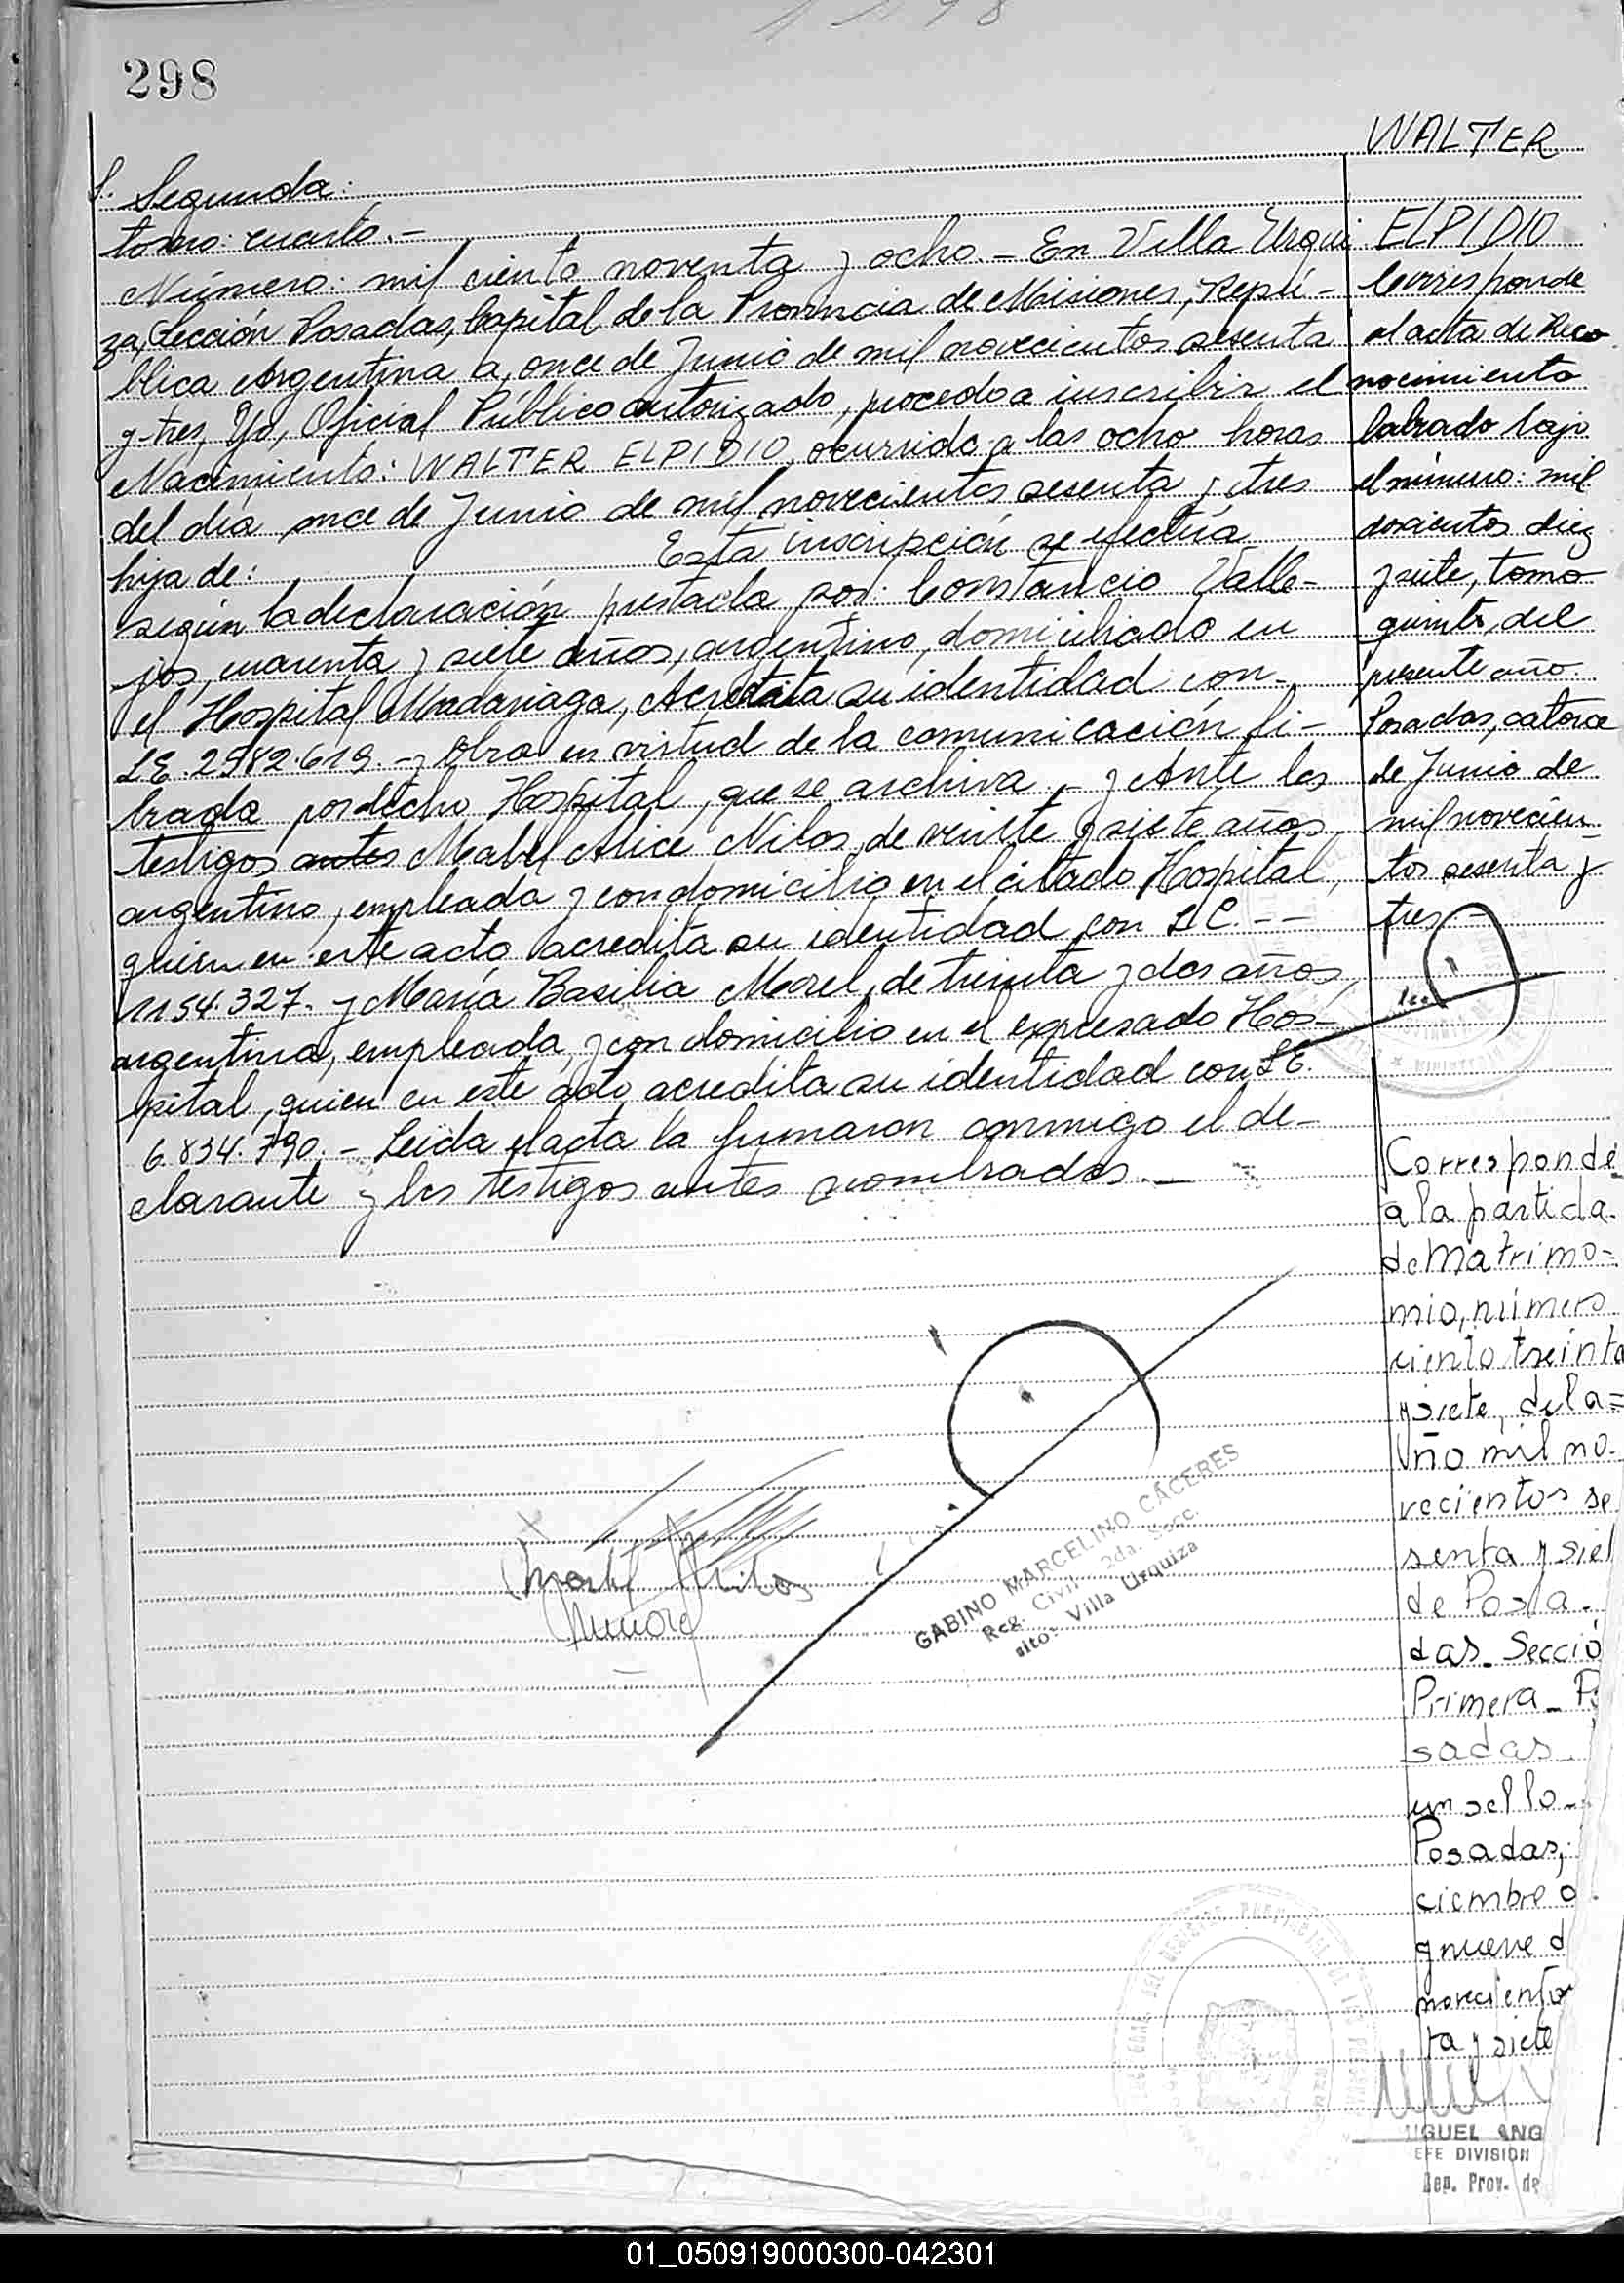 1198
298
S. Segunda:
tomo: cuarto.-
Número: mil ciento noventa y ocho.- En Villa Urqui
za, Sección Posadas, Capital de la Provincia de Misiones, Repú-
blica Argentina a, once de Junio de mil novecientos sesenta
y tres, Yo, Oficial Público autorizado, procedo a inscribir el
Nacimiento: WALTER ELPIDIO, ocurrido a las ocho horas
del día once de Junio de mil novecientos sesenta y tres
hija de: Esta inscripción se efectúa
según la declaración prestada por: Constancio Valle-
jos, cuarenta y siete años, argentino, domiciliado en
el Hospital Madariaga, Acredita su identidad con-
L.E. 2582.619.- y Obra en virtud de la comunicación li-
brada por dicho Hospital, que se archiva.- y Ante los
testigos antes Mabel Alice Nilos, de veinte y siete años,
argentino, empleada y con domicilio en el citado Hospital,
quien en este acto acredita su identidad con L.C. --
1154.327.- y María Basilia Morel, de treinta y dos años,
argentina, empleada, y con domicilio en el expresado Hos-
pital, quien en este acto acredita su identidad con L.E.
6.834.790.- Leída el acta la firmaron conmigo el de-
clarante y los testigos antes nombrados.-
GABINO MARCELINO CÁCERES
Reg. Civil 2da. Secc.
sito: Villa Urquiza
WALTER
ELPIDIO
Corresponde
al acta de Reco
nocimiento
labrado bajo
el número: mil
doscientos diez
y siete, tomo
quinto, del
presente año.
Posadas, catorce
de Junio de
mil novecien
tos sesenta y
tres.-
Corresponde
a la partida
de Matrimo=
nio, número
ciento treinta
y siete, del a=
ño mil no-
vecientos se
senta y siet
de Posa-
das. Secció
Primera - P
sadas
un sello-
Posadas,
ciembre
y nueve d
novecientos
ta y siete
IGUEL ANG
EFE DIVISION
Gen. Prov. de
01_050919000300-042301